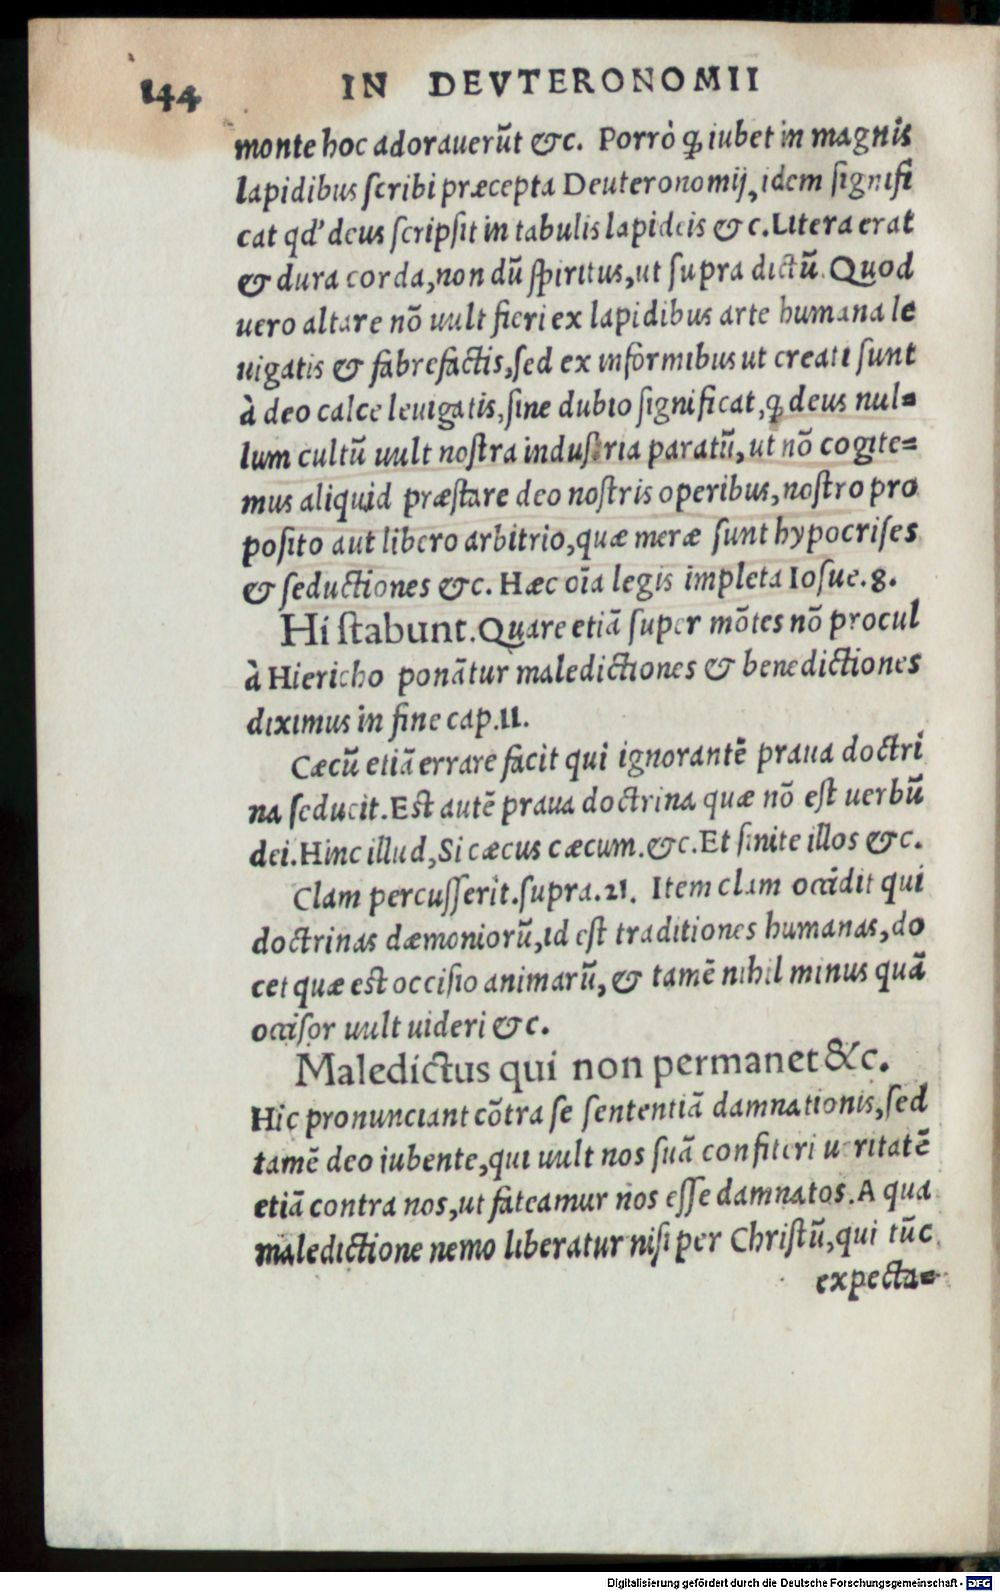 144 IN DEVTERONOMII
monte hoc adorauerũt &c. Porrò ꝙ iubet in magnis
lapidibus scribi præcepta Deuteronomij, idem signifi
cat qd' deus scripsit in tabulis lapideis &c. Litera erat
& dura corda, non dũ spiritus, ut supra dictũ. Quod
uero altare nõ uult fieri ex lapidibus arte humana le
uigatis & fabrefactis, sed ex informibus ut creati sunt
à deo calce leuigatis, sine dubio significat, ꝙ deus nul=
lum cultũ uult nostra industria paratũ, ut nõ cogite=
mus aliquid præstare deo nostris operibus, nostro pro
posito aut libero arbitrio, quæ meræ sunt hypocrises
& seductiones &c. Hæc oĩa legis impleta Iosue. 8.
Hi stabunt. Quare etiã super mõtes nõ procul
à Hiericho ponãtur maledictiones & benedictiones
diximus in fine cap. 11.
Cæcũ etiã errare facit qui ignorantẽ praua doctri
na seducit. Est autẽ praua doctrina quæ nõ est uerbũ
dei. Hinc illud, Si cæcus cæcum. &c. Et sinite illos &c.
Clam percusserit. supra. 21. Item clam occidit qui
doctrinas dæmoniorũ, id est traditiones humanas, do
cet quæ est occisio animarũ, & tamẽ nihil minus quã
occisor uult uideri &c.
Maledictus qui non permanet &c.
Hic pronunciant cõtra se sententiã damnationis, sed
tamẽ deo iubente, qui uult nos suã confiteri ueritatẽ
etiã contra nos, ut fateamur nos esse damnatos. A qua
maledictione nemo liberatur nisi per Christũ, qui tũc
expecta=
Digitalisierung gefördert durch die Deutsche Forschungsgemeinschaft - DFG